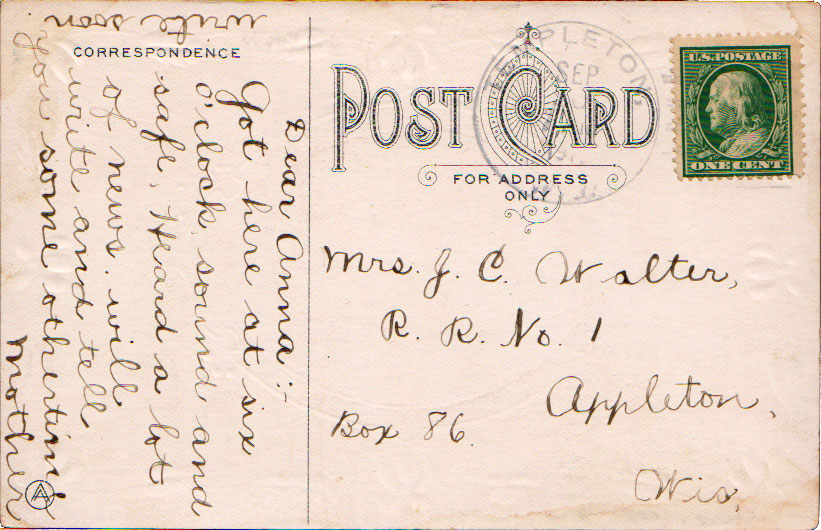 CORRESPONDENCE
POST CARD
FOR ADDRESS
ONLY
TEMPLETON,
SEP
WIS.
U.S. POSTAGE
ONE CENT
Dear Anna:-
Got here at six
o'clock, sound and
safe. Heard a lot
of news. will
write and tell
you some othertim
Mother
write soon
Mrs. J. C. Walter,
R. R. No. 1
Appleton,
Box 86.
Wis.
A